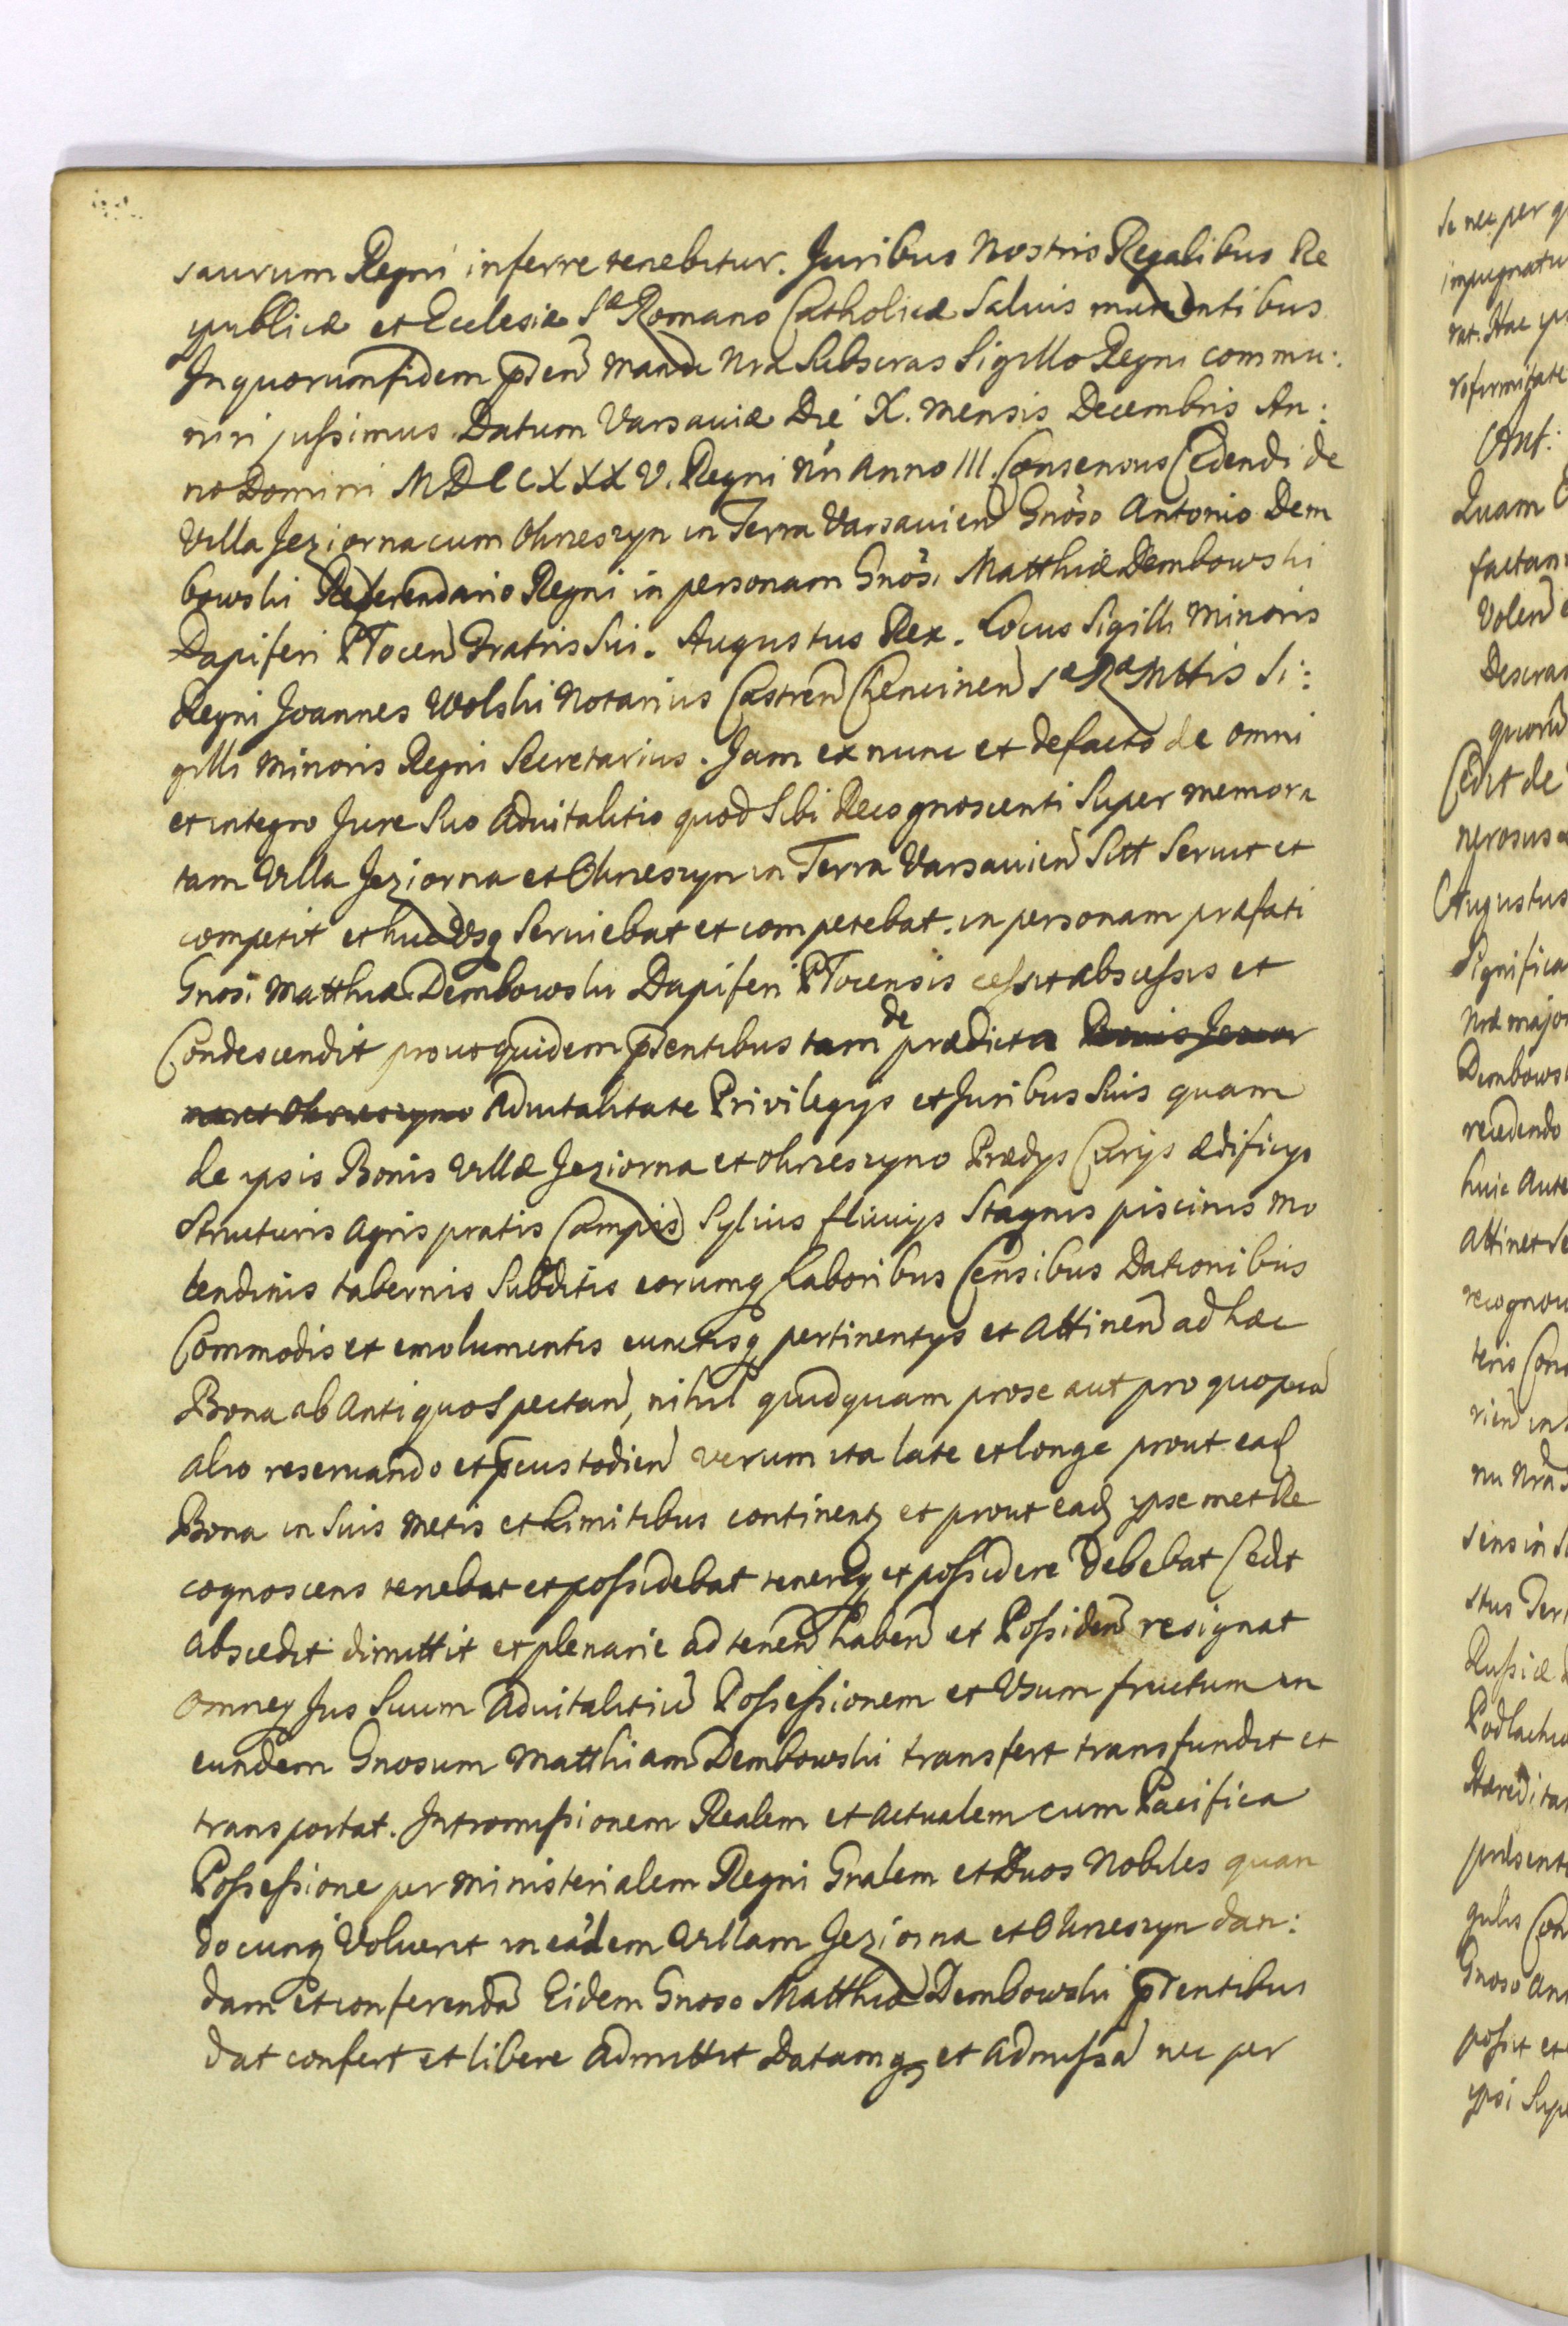 saurum Regni inferre tenebitur. Juribus Nostris Regalibus Re
publicæ et Ecclesiæ Sæ Romano Catholicæ Salvis manentibus
In quorum fidem pñten̄ manu Nrã Subscras Sigillo Regni commu:
niri jussimus. Datum Varsaviæ Die X. mensis Decembris An:
no Domini MDCCXXXV. Regni Nri Anno III. Consensus Cedendi de
Villa Jeziorna cum Obrzeszyn in Terra Varsavien̄ Gnoso Antonio Dem
bowski Referendario Regni in personam Gnosi Matthiæ Dembowski
Dapiferi Plocen̄ Fratris Sui. Augustus Rex. Locus Sigilli Minoris
Regni Joannes Wolski Notarius Castren̄ Chencinen̄ Sæ Ræ Mttis Si:
gilli Minoris Regni Secretarius. Jam ex nunc et de facto de omni
et integro Jure Suo Advitalitio quod Sibi Recognoscenti Super memora
tam Villa Jeziorna et Obrzeszyn in Terra Varsavien̄ Sitt Servit et
competit et huc Usq Serviebat et competebat. in personam præfati
Gnosi Matthiæ Dembowski Dapiferi Plocensis cessit abscessit et
Condescendit prout quidem pñtentibus tam de prædicta Bonis Jezior
na et Obrzeszyno Advitalitate Privilegys et Juribus Suis quam
de ipsis Bonis Villæ Jeziorna et Obrzeszyno Prædys Curys ædificys
Structuris Agris pratis Campis Sylvis fluvys Stagnis piscinis Mo
lendinis tabernis Subditis eorumq Laboribus Censibus Dationibus
Commodis et emolumentis cunctisq pertinentys et Attinen̄ ad hæc
Bona ab Antiquo Spectan̄, nihil quidquam pro se aut pro quopiã
alio reservando et pcustodien̄ verum ita late et longe prout eadz
Bona in Suis Metis et Limitibus continentz et prout eadz ipsemet Re
cognoscens tenebat et possidebat tenereq et possidere Debebat Cedit
abscedit dimittit et plenarie ad tenen̄ haben̄ et Possiden̄ resignat
Omneq Jus Suum Advitalitiũ Possessionem et Usum fructum in
eundem Gnosum Matthiam Dembowski transfert transfundit et
transportat. Intromissionem Realem et Actualem cum Pacifica
Possessione per Ministerialem Regni Gnalem et Duos Nobiles quan
documq Voluerit in eãdem Villam Jeziorna et Obrzeszyn dan:
dam et conferendã Eidem Gnoso Matthiæ Dembowski pñtentibus
dat confert et libere Admittit Datamq et Admissã nec per